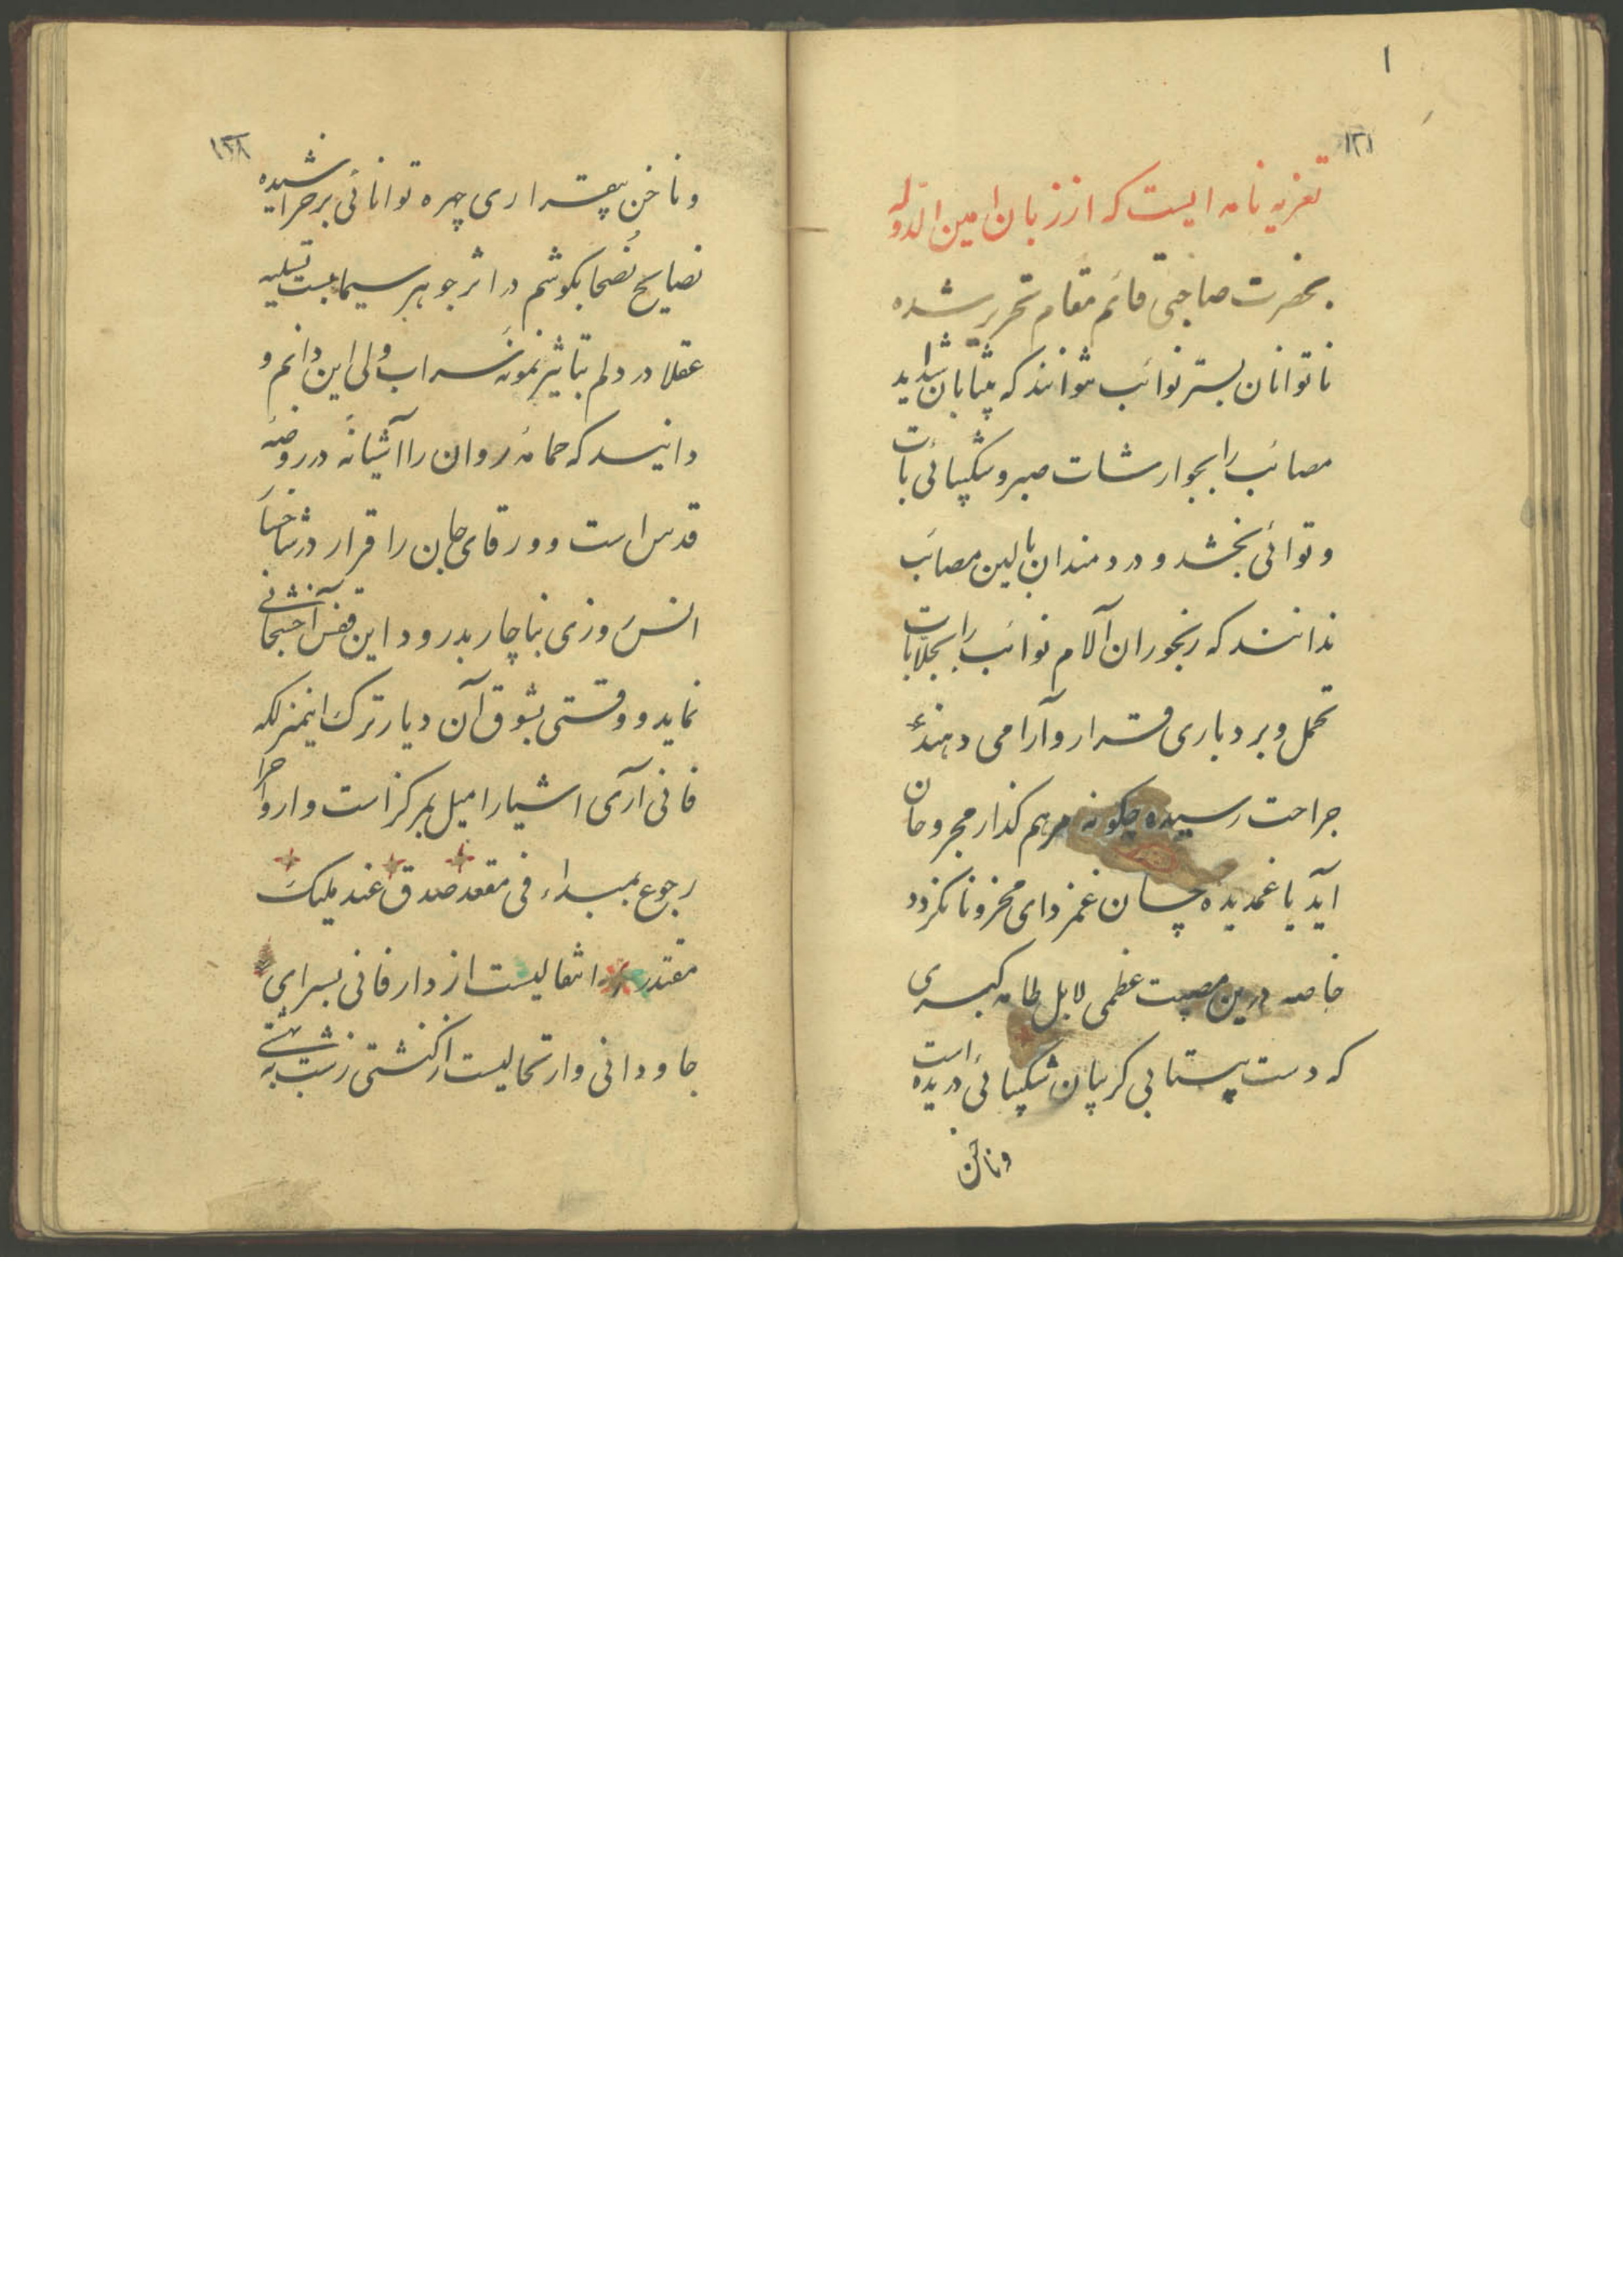 ۱
۱۲۱
تعزیه نامه ایست که از زبان امین الدوله
بحضرت صاحبی قائم مقام تحریر شده
ناتوانان بستر نوائب نتوانند که بیتابان شداید
مصائب را بجوارشات صبر و شکیبائی تاب
و توانی بخشد و دردمندان بالین مصائب
ندانند که رنجوران آلام نوائب را بجلابات
تحمل و بردباری قرار و آرامی دهند
جراحت رسیده چگونه مرهم گذار مجروحان
آید یا غمدیده چسان غمزدای محزونان گردد
خاصه درین مصیبت عظمی لابل طامه کبری
که دست بیتابی گریبان شکیبائی دریده است
و ناخن
۱۲۸
و ناخن بیقراری چهره توانائی برخراشیده
نصایح نصحا بگوشم در اثر جوهر سیماب تسلیه
عقلا در دلم بتاثیر نمونه سراب ولی این دانم و
دانید که حمامه روان را آشیانه در روضه
قدس است و ورقای جان را قرار در شاخسار
انس روزی بناچار بدرود این قفس
نماید و وقتی بشوق آن دیار ترک اینمنزلکه
فانی آری اشیا را میل بمرکز است و ارواح را
رجوع بمبداء فی مقعد صدق عند ملیک
مقتدر انتقالیست از دار فانی بسرای
جاودانی و ارتحالیست از کنشتی زشت به بهشتی